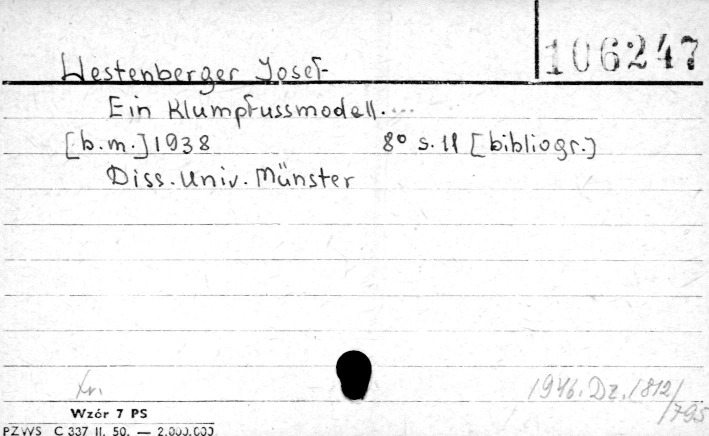 106247
Westenberger Josef
Ein Klumpfussmodell....
[b.m.] 1938 8° s. 11 [bibliogr.]
Diss. Univ. Münster
1946. Dz. 1812/
/795
Wzór 7 PS
PZWS C 337 II. 50. — 2.000.000